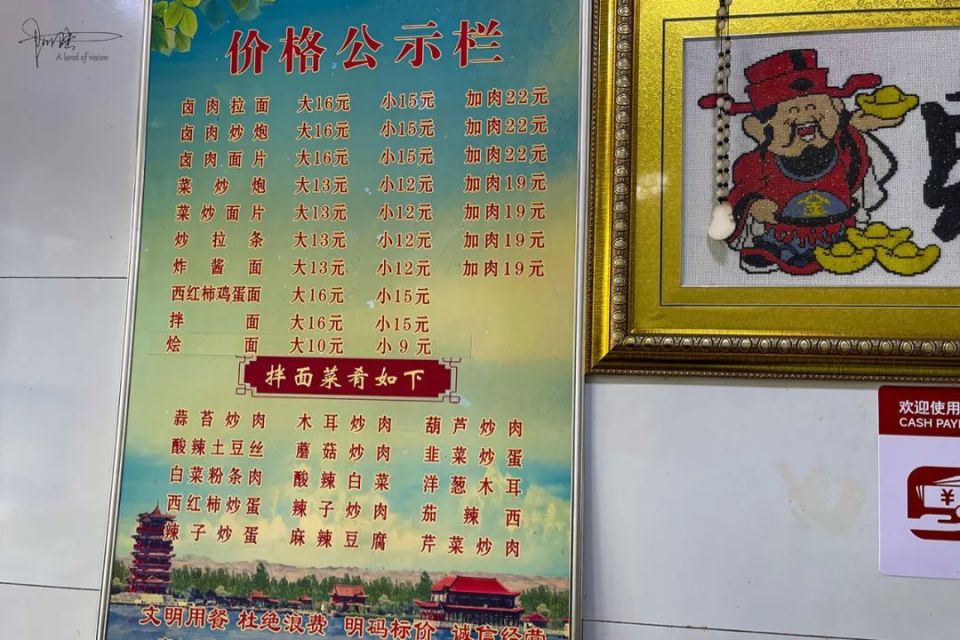 A land of vision
价格公示栏
卤肉拉面 大16元 小15元 加肉22元
卤肉炒炮 大16元 小15元 加肉22元
卤肉面片 大16元 小15元 加肉22元
菜炒炮 大13元 小12元 加肉19元
菜炒面片 大13元 小12元 加肉19元
炒拉条 大13元 小12元 加肉19元
炸酱面 大13元 小12元 加肉19元
西红柿鸡蛋面 大16元 小15元
拌面 大16元 小15元
烩面 大10元 小9元
拌面菜肴如下
蒜苔炒肉 木耳炒肉 葫芦炒肉
酸辣土豆丝 蘑菇炒肉 韭菜炒蛋
白菜粉条肉 酸辣白菜 洋葱木耳
西红柿炒蛋 辣子炒肉 茄辣西
辣子炒蛋 麻辣豆腐 芹菜炒肉
文明用餐 杜绝浪费 明码标价 诚信经营
欢迎使用
CASH PAY
¥